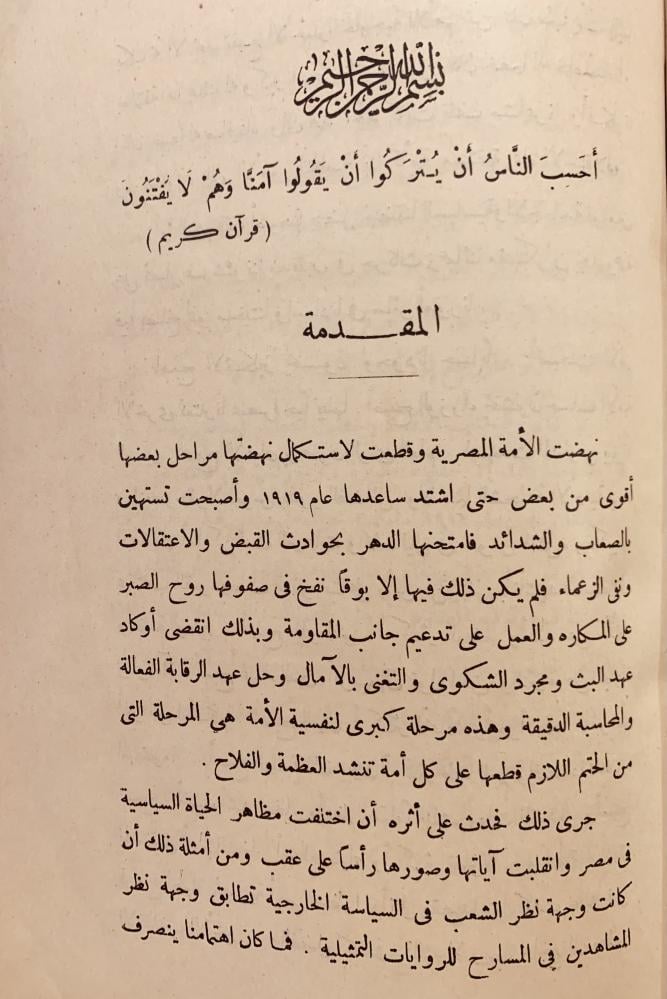 بسم الله الرحمن الرحيم
أَحَسِبَ النَّاسُ أَنْ يُتْرَكُوا أَنْ يَقُولُوا آمَنَّا وَهُمْ لَا يَفْتَنُونَ
(قرآن كريم)
المقدمة
نهضت الأمة المصرية وقطعت لاستكمال نهضتها مراحل بعضها
أقوى من بعض حتى اشتد ساعدها عام ١٩١٩ وأصبحت تستهين
بالصعاب والشدائد فامتحنها الدهر بحوادث القبض والاعتقالات
ونفى الزعماء فلم يكن ذلك فيها إلا بوقاً نفخ فى صفوفها روح الصبر
على المكاره والعمل على تدعيم جانب المقاومة وبذلك انقضى أوكاد
عهد البث ومجرد الشكوى والتغنى بالآمال وحل عهد الرقابة الفعالة
والمحاسبة الدقيقة وهذه مرحلة كبرى لنفسية الأمة هي المرحلة التى
من الحتم اللازم قطعها على كل أمة تنشد العظمة والفلاح .
جرى ذلك فحدث على أثره أن اختلفت مظاهر الحياة السياسية
فى مصر وانقلبت آياتها وصورها رأساً على عقب ومن أمثلة ذلك أن
كانت وجهة نظر الشعب فى السياسة الخارجية تطابق وجهة نظر
المشاهدين في المسارح للروايات التمثيلية . فما كان اهتمامنا ينصرف